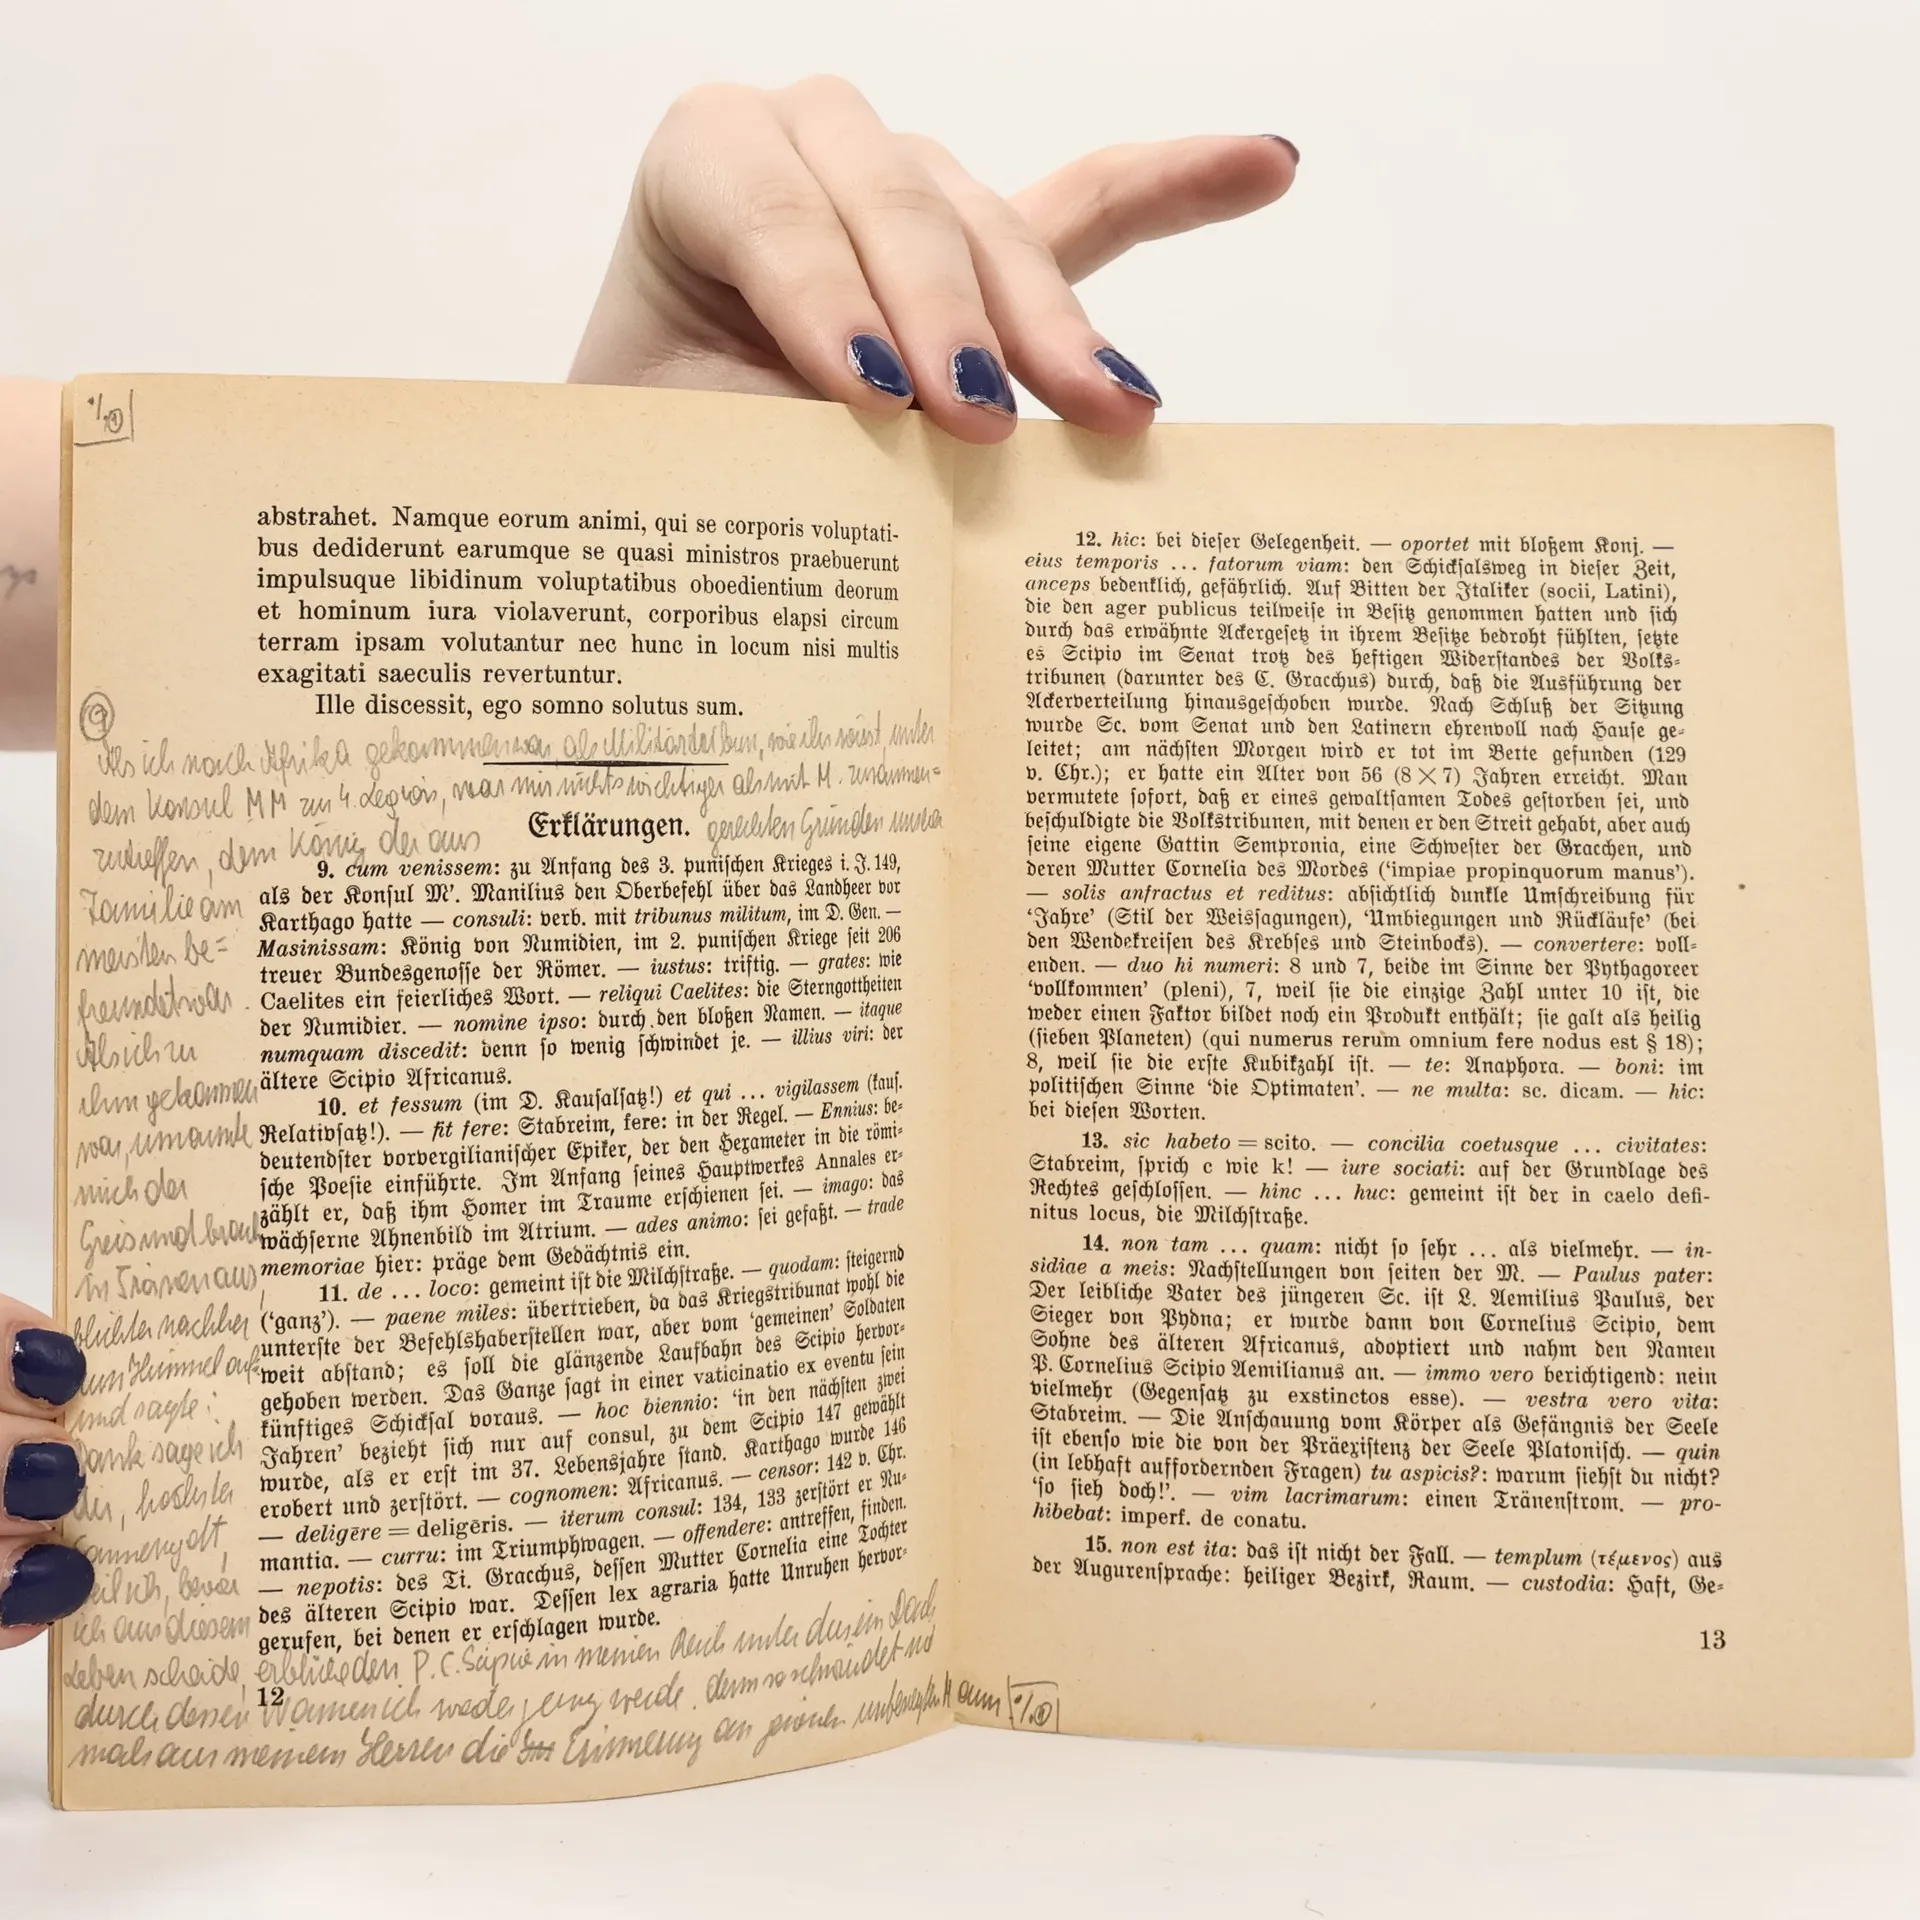 abstrahet. Namque eorum animi, qui se corporis voluptati-
bus dediderunt earumque se quasi ministros praebuerunt
impulsuque libidinum voluptatibus oboedientium deorum
et hominum iura violaverunt, corporibus elapsi circum
terram ipsam volutantur nec hunc in locum nisi multis
exagitati saeculis revertuntur.
Ille discessit, ego somno solutus sum.
Als ich nach Afrika gekommen war, als Militärtribun, wie ihr wisst, unter
dem Konsul MM zur 4. Legion, war mir nichts wichtiger als mit M. zusammen=
zutreffen, dem König der aus
gerechten Gründen unsrer
Familie am
meisten be=
freundet war.
Als ich zu
ihm gekommen
war, umarmte
mich der
Greis und brach
in Tränen aus,
blickte nachher
zum Himmel auf
und sagte:
Dank sage ich
dir, höchster
Sonnengott,
weil ich, bevor
ich aus diesem
Leben scheide, erblicke den P.C. Scipio in meinem Reich unter diesem Dach
durch dessen Namen ich wieder jung werde. denn so schwindet nie
mals aus meinem Herzen die Erinnerung an jenen unbesiegten Mann
Erklärungen.
9. cum venissem: zu Anfang des 3. punischen Krieges i. J. 149,
als der Konsul M'. Manilius den Oberbefehl über das Landheer vor
Karthago hatte — consuli: verb. mit tribunus militum, im D. Gen. —
Masinissam: König von Numidien, im 2. punischen Kriege seit 206
treuer Bundesgenosse der Römer. — iustus: triftig. — grates: wie
Caelites ein feierliches Wort. — reliqui Caelites: die Sterngottheiten
der Numidier. — nomine ipso: durch den bloßen Namen. — itaque
numquam discedit: denn so wenig schwindet je. — illius viri: der
ältere Scipio Africanus.
10. et fessum (im D. Kausalsatz!) et qui ... vigilassem (kaus.
Relativsatz!). — fit fere: Stabreim, fere: in der Regel. — Ennius: be-
deutendster vorvergilianischer Epiker, der den Hexameter in die römi-
sche Poesie einführte. Im Anfang seines Hauptwerkes Annales er-
zählt er, daß ihm Homer im Traume erschienen sei. — imago: das
wächserne Ahnenbild im Atrium. — ades animo: sei gefaßt. — trade
memoriae hier: präge dem Gedächtnis ein.
11. de ... loco: gemeint ist die Milchstraße. — quodam: steigernd
('ganz'). — paene miles: übertrieben, da das Kriegstribunat wohl die
unterste der Befehlshaberstellen war, aber vom 'gemeinen' Soldaten
weit abstand; es soll die glänzende Laufbahn des Scipio hervor-
gehoben werden. Das Ganze sagt in einer vaticinatio ex eventu sein
künftiges Schicksal voraus. — hoc biennio: 'in den nächsten zwei
Jahren' bezieht sich nur auf consul, zu dem Scipio 147 gewählt
wurde, als er erst im 37. Lebensjahre stand. Karthago wurde 146
erobert und zerstört. — cognomen: Africanus. — censor: 142 v. Chr.
— deligēre = deligēris. — iterum consul: 134, 133 zerstört er Nu-
mantia. — curru: im Triumphwagen. — offendere: antreffen, finden.
— nepotis: des Ti. Gracchus, dessen Mutter Cornelia eine Tochter
des älteren Scipio war. Dessen lex agraria hatte Unruhen hervor-
gerufen, bei denen er erschlagen wurde.
12
12. hic: bei dieser Gelegenheit. — oportet mit bloßem Konj. —
eius temporis ... fatorum viam: den Schicksalsweg in dieser Zeit,
anceps bedenklich, gefährlich. Auf Bitten der Italiker (socii, Latini),
die den ager publicus teilweise in Besitz genommen hatten und sich
durch das erwähnte Ackergesetz in ihrem Besitze bedroht fühlten, setzte
es Scipio im Senat trotz des heftigen Widerstandes der Volks-
tribunen (darunter des C. Gracchus) durch, daß die Ausführung der
Ackerverteilung hinausgeschoben wurde. Nach Schluß der Sitzung
wurde Sc. vom Senat und den Latinern ehrenvoll nach Hause ge-
leitet; am nächsten Morgen wird er tot im Bette gefunden (129
v. Chr.); er hatte ein Alter von 56 (8 × 7) Jahren erreicht. Man
vermutete sofort, daß er eines gewaltsamen Todes gestorben sei, und
beschuldigte die Volkstribunen, mit denen er den Streit gehabt, aber auch
seine eigene Gattin Sempronia, eine Schwester der Gracchen, und
deren Mutter Cornelia des Mordes ('impiae propinquorum manus').
— solis anfractus et reditus: absichtlich dunkle Umschreibung für
'Jahre' (Stil der Weissagungen), 'Umbiegungen und Rückläufe' (bei
den Wendekreisen des Krebses und Steinbocks). — convertere: voll-
enden. — duo hi numeri: 8 und 7, beide im Sinne der Pythagoreer
'vollkommen' (pleni), 7, weil sie die einzige Zahl unter 10 ist, die
weder einen Faktor bildet noch ein Produkt enthält; sie galt als heilig
(sieben Planeten) (qui numerus rerum omnium fere nodus est § 18);
8, weil sie die erste Kubikzahl ist. — te: Anaphora. — boni: im
politischen Sinne 'die Optimaten'. — ne multa: sc. dicam. — hic:
bei diesen Worten.
13. sic habeto = scito. — concilia coetusque ... civitates:
Stabreim, sprich c wie k! — iure sociati: auf der Grundlage des
Rechtes geschlossen. — hinc ... huc: gemeint ist der in caelo defi-
nitus locus, die Milchstraße.
14. non tam ... quam: nicht so sehr ... als vielmehr. — in-
sidiae a meis: Nachstellungen von seiten der M. — Paulus pater:
Der leibliche Vater des jüngeren Sc. ist L. Aemilius Paulus, der
Sieger von Pydna; er wurde dann von Cornelius Scipio, dem
Sohne des älteren Africanus, adoptiert und nahm den Namen
P. Cornelius Scipio Aemilianus an. — immo vero berichtigend: nein
vielmehr (Gegensatz zu exstinctos esse). — vestra vero vita:
Stabreim. — Die Anschauung vom Körper als Gefängnis der Seele
ist ebenso wie die von der Präexistenz der Seele Platonisch. — quin
(in lebhaft auffordernden Fragen) tu aspicis?: warum siehst du nicht?
'so sieh doch!'. — vim lacrimarum: einen Tränenstrom. — pro-
hibebat: imperf. de conatu.
15. non est ita: das ist nicht der Fall. — templum (τέμενος) aus
der Augurensprache: heiliger Bezirk, Raum. — custodia: Haft, Ge-
13